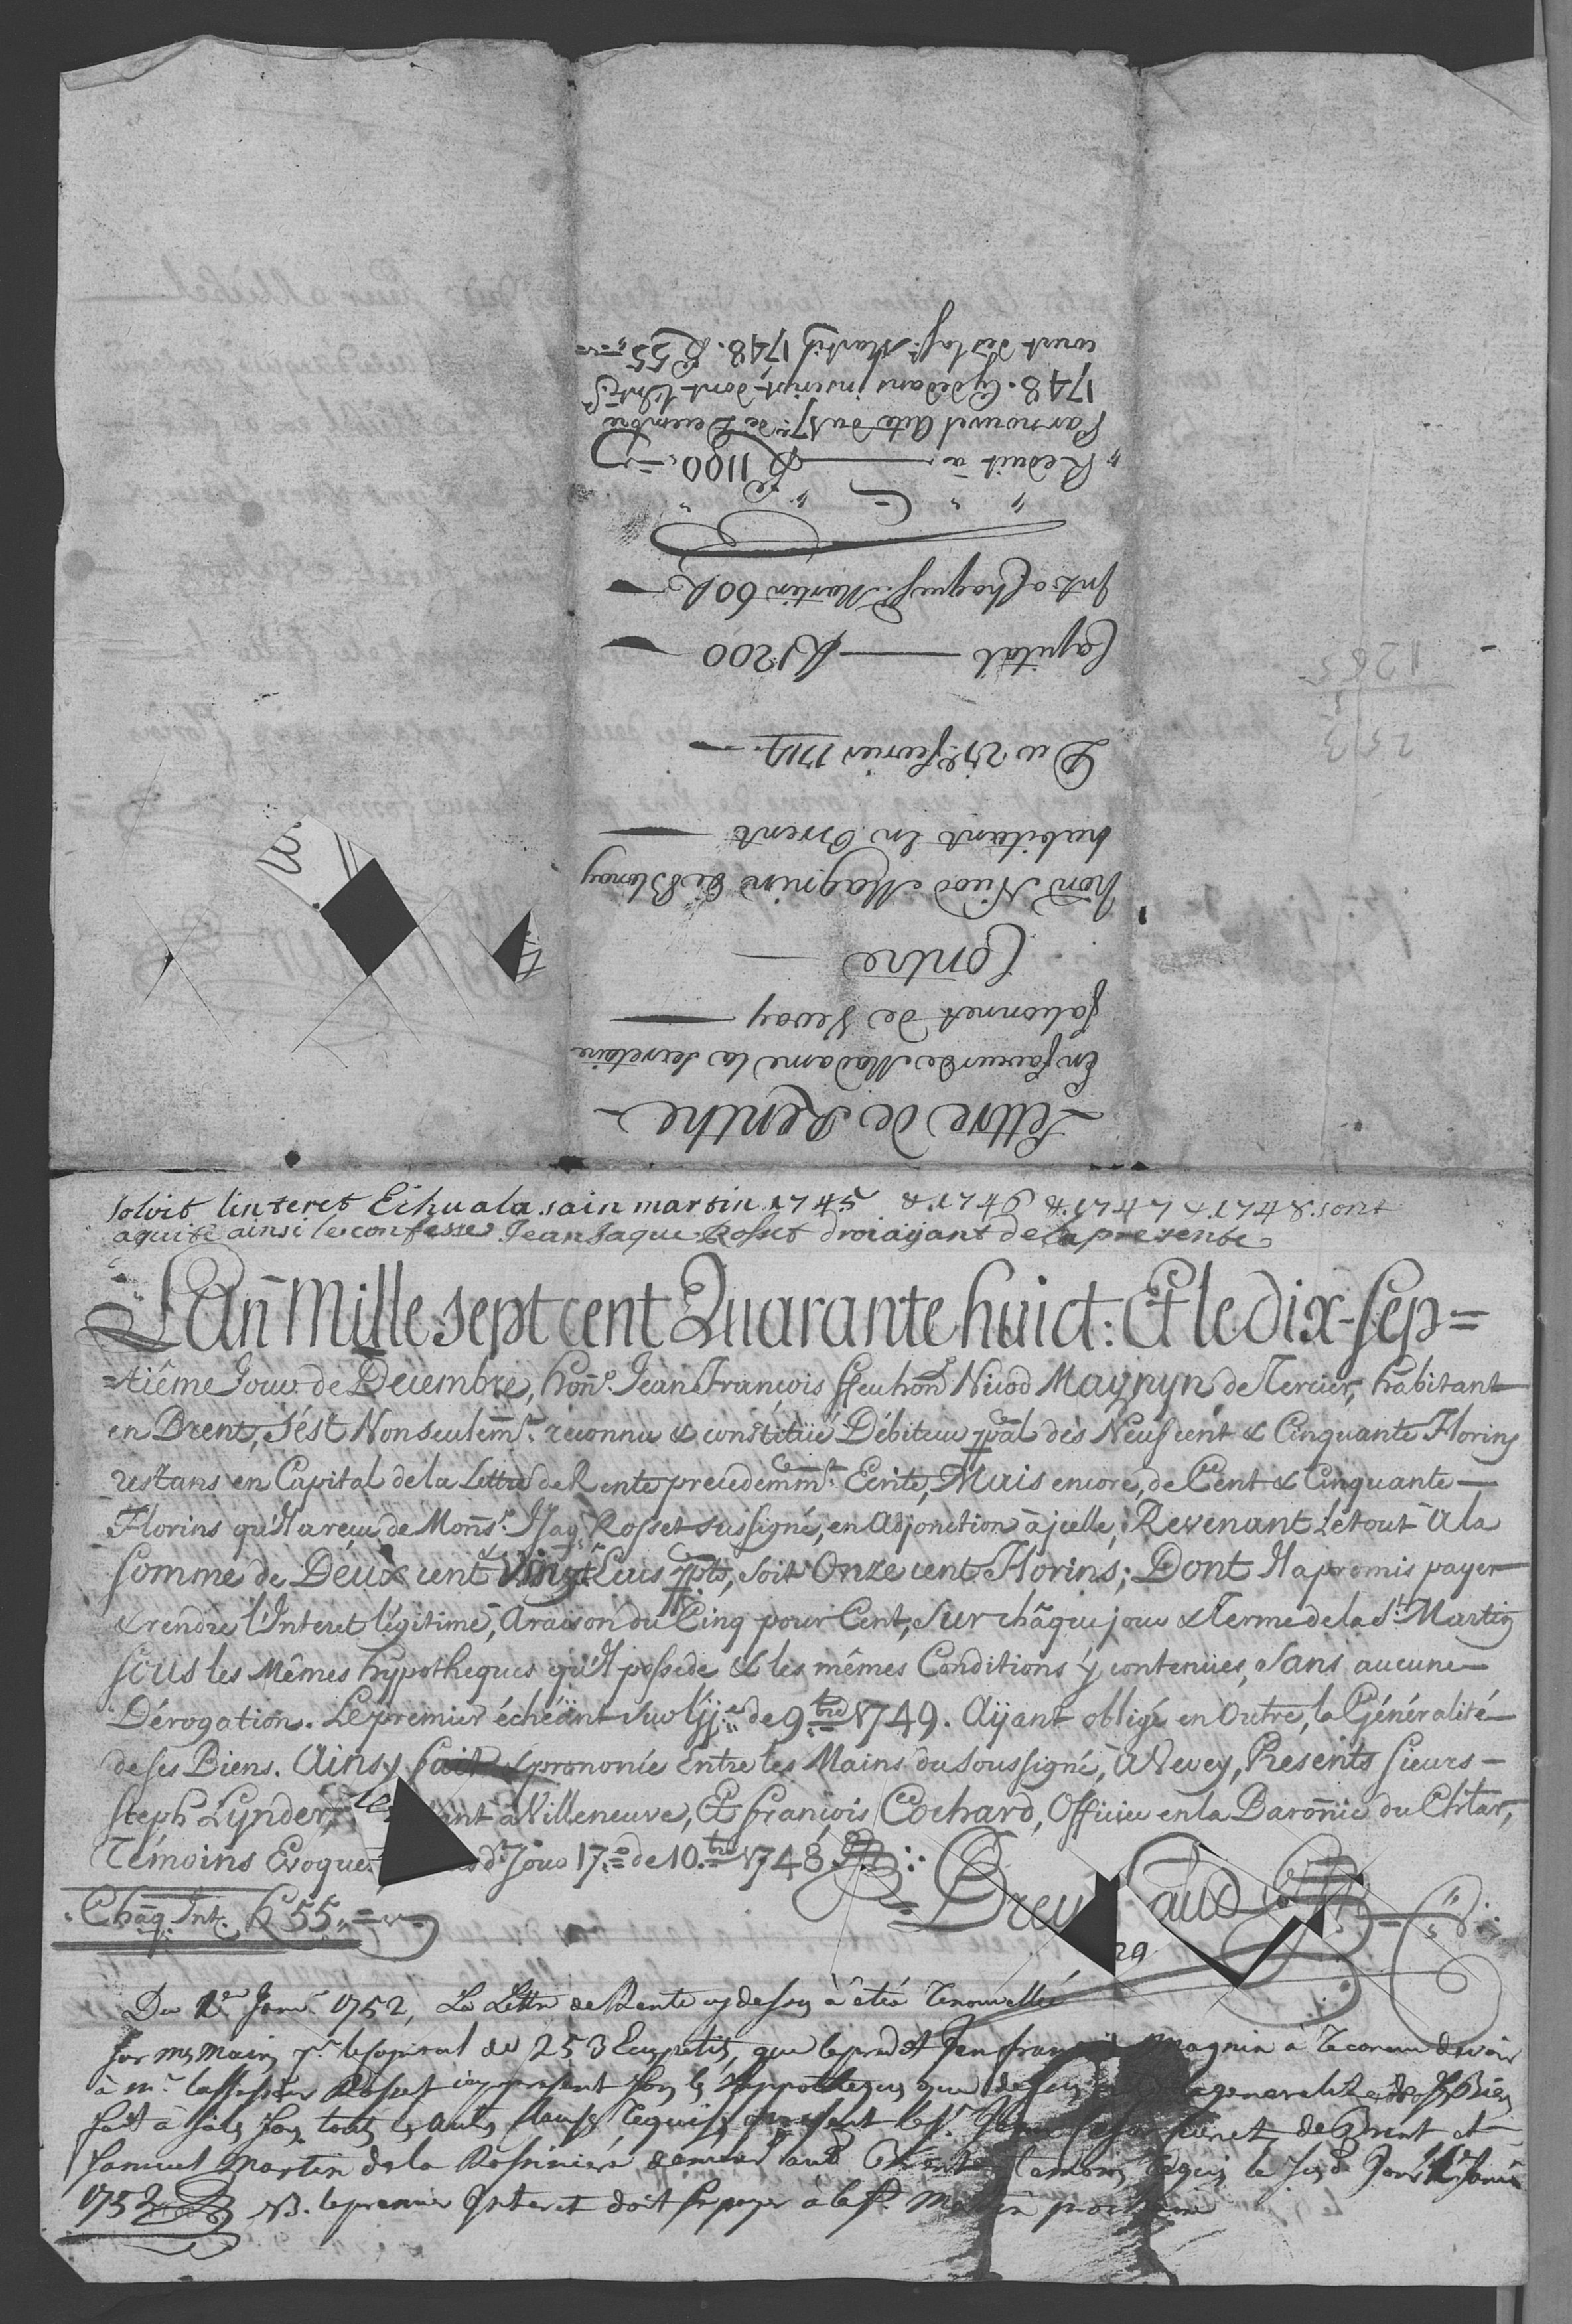 Lettre de Renthe
En faveur de Madame la Secretaire
falconnet de Vevay
Contre
hon̄d Nicod Magnin de Blonay
habitant en Brent
Du 21e fevrier 1714
Capital — fl 1200
Int. a chaque st. Martin 60 fl
" Reduit à — fl 1100
Par nouvel Acte du 17e de Decembre
1748. Cy dedans inscript dont l'Intt
court dès la st. Martin 1748. fl 55
253
5
1265
solvit linteret Echu ala sain martin 1745 & 1746 & 1747 & 1748 sont
aquité ainsi le confesse Jean Jaque Rosset droiaÿant de la presente
L'An Mille sept cent Quarante huict: Et le dix-sep=
=tiême Jour de Decembre, honn. Jean François ffeu hon̄d Nicod Magnyn, de Tercier, habitant
en Brent, s'est Non seulemt. reconnu & constitüé Débiteur ppal des Neuf cent & Cinquante Florins
restans en Capital de la Lettre de Rente precedemmt. Ecrite, Mais encore, de Cent & Cinquante
Florins qu'Il a reçu de Monsr. Jaq. Rosset sussigné, en Adjonction à jcelle, Revenant le tout à la
somme de Deux cent & Vingt Ecus ppts, soit Onze cent Florins; Dont Il a promis payer
& rendre l'Interet légitime, à raison du Cinq pour Cent, Sur châque jour & Terme de la St. Martin
sous les Mêmes hypotheques qu'Il possede & les mêmes Conditions y contenües, Sans aucune
Dérogation. Le premier échéant sur l'jje de 9bre 1749. Aÿant obligé en Outre, la Généralité
de ses Biens. Ainsy fait & prononcé Entre les Mains du Soussigné, à Vevey, Presents sieurs
Steph Lynder, à Villeneuve, Et François Cochard, Officier en la Baronnie du Chlar,
Témoins Evoque susd. Jour 17e de 10bre 1748
Châq. Int. fl 55
Du 1er Janr. 1752, La Lettre de Rente cy dessus à êtéé renouvellée
sur mes Mains pr. le Capital de 253 Ecuspetits, que le predit Jenfrançois Magnin à reconnu devoir
à mr. lassesseur Rosset icy present sous les hyppotheques que dessus la generalité de ses Biens
fait à sous toutes les autres clauses requises present le Sr. de Brent et
Samuel Martin de la Rossiniere demeurant Temoins requis le susd. Jour 1er Janr
1752 NB. le premier Interet doit se payer à la St. Martin prochaine